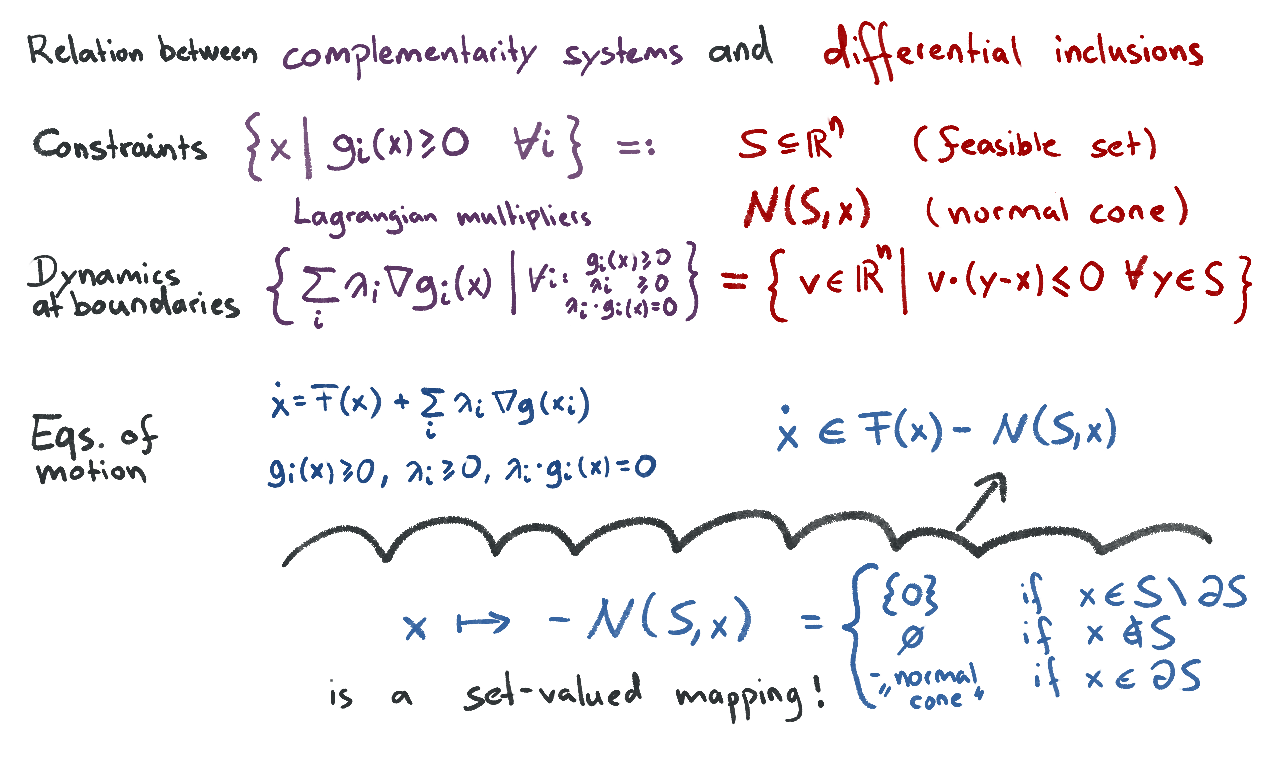 Relation between complementarity systems and differential inclusions
Constraints {x | gᵢ(x)⩾0 ∀i} =: S ⊆ ℝⁿ (feasible set)
Lagrangian multipliers N(S,x) (normal cone)
Dynamics at boundaries { ∑ᵢ λᵢ∇gᵢ(x) | ∀i: gᵢ(x)⩾0 λᵢ ⩾0 λᵢ·gᵢ(x)=0 } = { v∈ℝⁿ | v·(y-x)⩽0 ∀y∈S }
Eqs. of motion
ẋ = F(x) + ∑ᵢ λᵢ ∇g(xᵢ)
gᵢ(x)⩾0, λᵢ⩾0, λᵢ·gᵢ(x)=0
ẋ ∈ F(x) - N(S,x)
x ↦ - N(S,x) = { {0} if x∈S\∂S
∅ if x∉S
-„normal cone“ if x∈∂S
is a set-valued mapping!